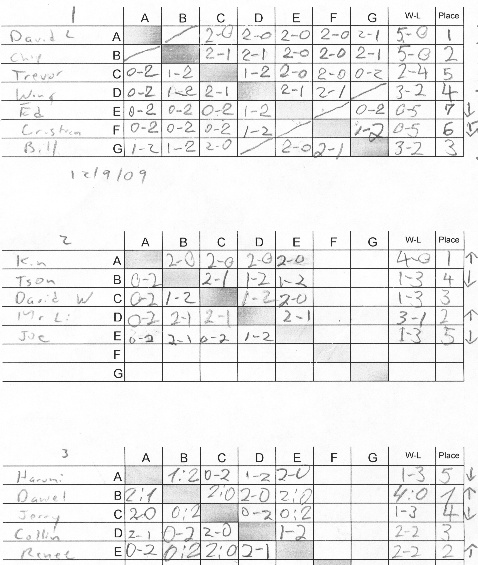 1 A B C D E F G W-L Place
David L A 2-0 2-0 2-0 2-0 2-1 5-0 1
Chip B 2-1 2-1 2-0 2-0 2-1 5-0 2
Trevor C 0-2 1-2 1-2 2-0 2-0 0-2 2-4 5
Wing D 0-2 1-2 2-1 2-1 2-1 3-2 4
Ed E 0-2 0-2 0-2 1-2 0-2 0-5 7 ↓
F 0-2 0-2 0-2 1-2 1-2 0-5 6
Bill G 1-2 1-2 2-0 2-0 2-1 3-2 3
12/9/09
2 A B C D E F G W-L Place
Kin A 2-0 2-0 2-0 2-0 4-0 1 ↑
Tson B 0-2 2-1 1-2 1-2 1-3 4 ↓
David W C 0-2 1-2 1-2 2-0 1-3 3
Mr Li D 0-2 2-1 2-1 2-1 3-1 2 ↑
Joe E 0-2 2-1 0-2 1-2 1-3 5 ↓
F
G
3 A B C D E F G W-L Place
Harumi A 1:2 0-2 1-2 2-0 1-3 5 ↓
Daniel B 2:1 2:0 2-0 2:0 4:0 1 ↑
Jerry C 2-0 0:2 0-2 0:2 1-3 4 ↓
Collin D 2-1 0-2 2-0 1-2 2-2 3
Renee E 0-2 0:2 2:0 2-1 2-2 2 ↑